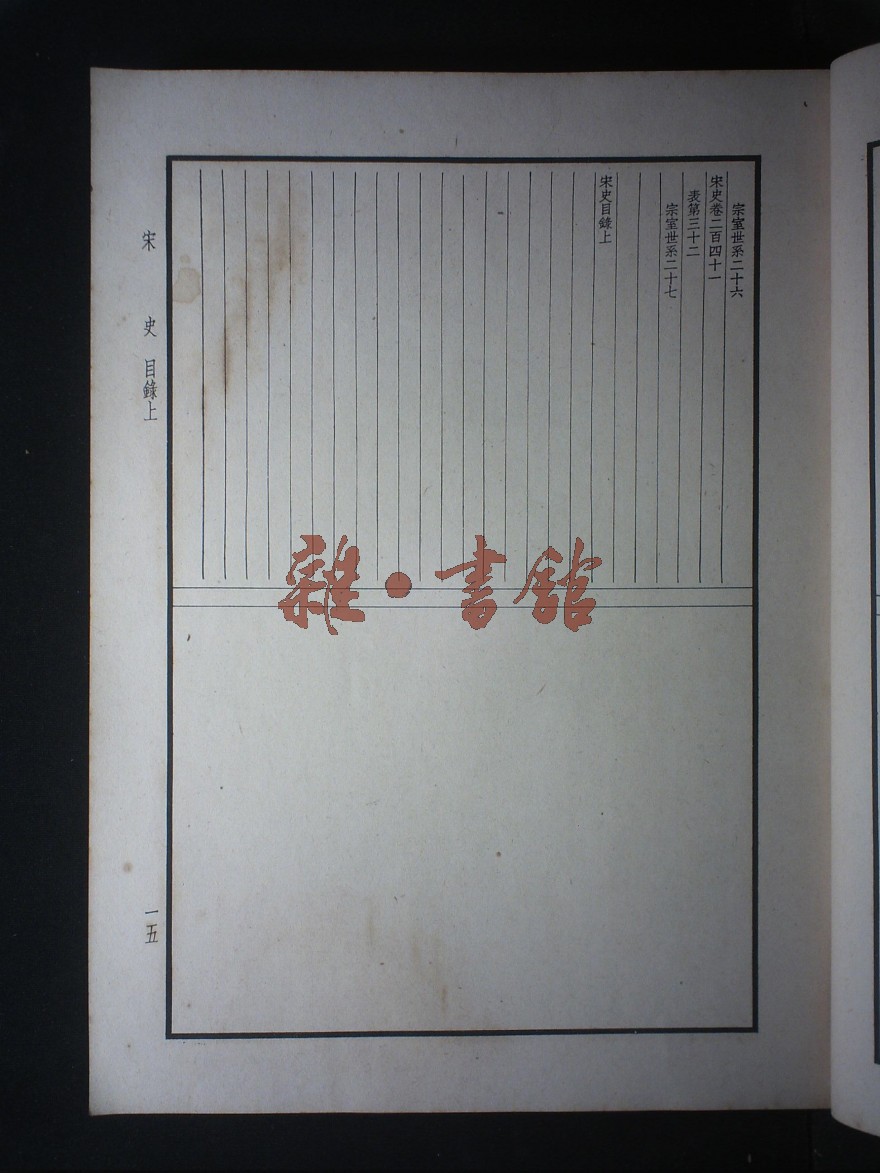 宗室世系二十六
宋史卷二百四十一
表第三十二
宗室世系二十七
宋史目錄上
宋史 目錄上
一五
雜·書館